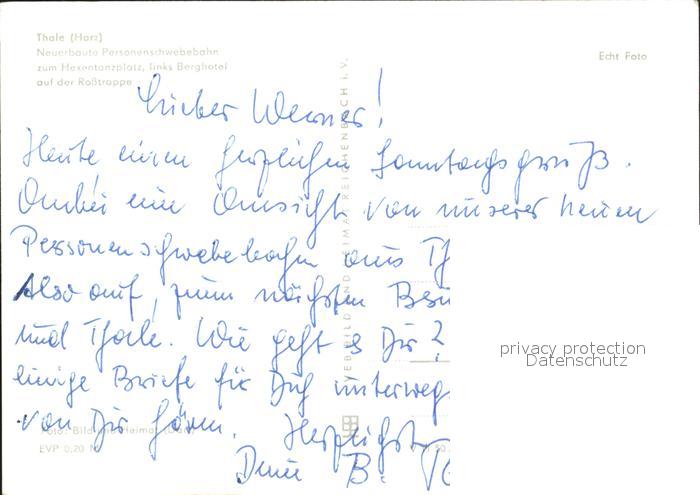 Thale (Harz)
Neuerbaute Personenschwebebahn
zum Hexentanzplatz, links Berghotel
auf der Roßtrappe
Echt Foto
Lieber Werner!
Heute einen herzlichen Sonntagsgruß.
Anbei eine Ansicht von unserer neuen
Personenschwebebahn aus Th
Also auf, zum nächsten Besu
und Thale. Wie geht es Dir?
einige Briefe für Dich unterweg
von Dir hören. Herzlichst
Deine B.
VEB BILD UND HEIMAT REICHENBACH i. V.
Foto: Bild und Heimat
EVP 0,20 M
privacy protection
Datenschutz